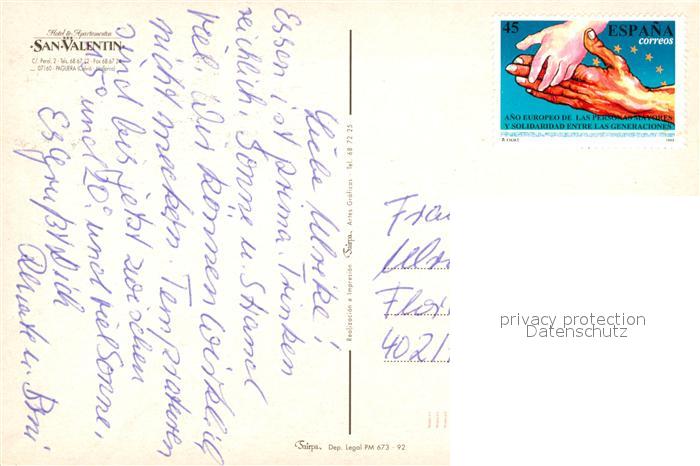 Hotel & Apartamentos
SAN-VALENTIN
C/. Pensi, 2 - Tels. 68 67 12 - Fax 68 67 24
07160 - PAGUERA (Calvià - Mallorca)
Liebe Ulrike!
Essen ist prima. Trinken
reichlich. Sonne u. Strand
viel. Wir können wirklich
nicht meckern. Temperaturen
sind bis jetzt zwischen
15° und 20° und viel Sonne.
Es grüßt Dich
u.
Sairpa. Artes Gráficas - Tel. 68 72 25
Realización e Impresión
Sairpa. Dep. Legal PM 673 - 92
45 ESPAÑA
correos
AÑO EUROPEO DE LAS PERSONAS MAYORES
Y SOLIDARIDAD ENTRE LAS GENERACIONES
1993
Frau
Ulri
402
privacy protection
Datenschutz